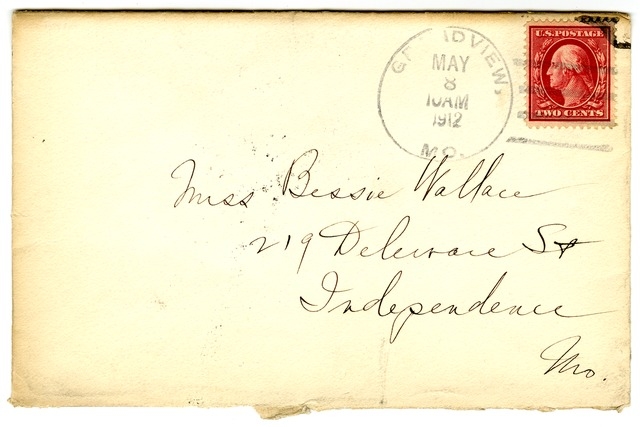 GRANDVIEW,
MAY
8
10AM
1912
MO.
U.S. POSTAGE
TWO CENTS
Miss Bessie Wallace
219 Deleware St
Independence
Mo.